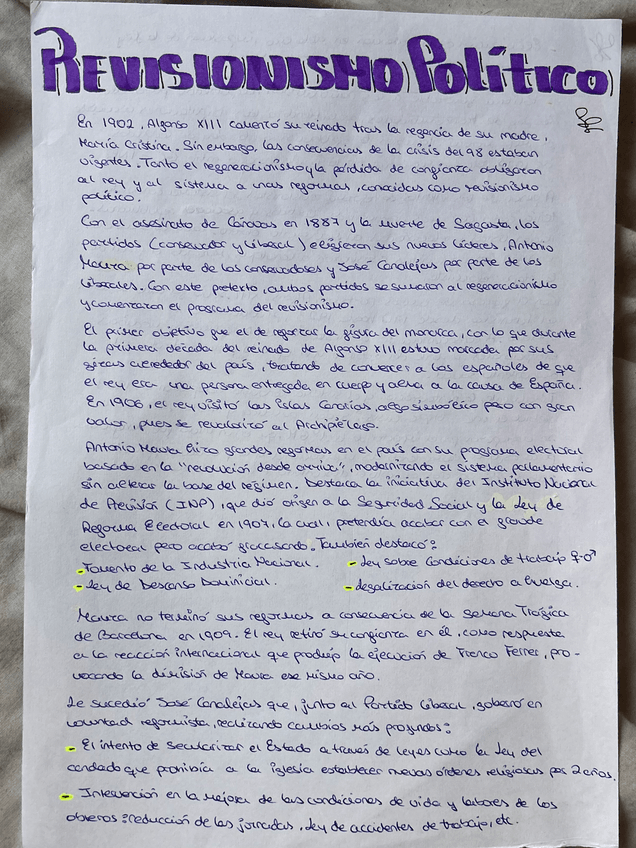 REVISIONISMO Político
En 1902, Alfonso XIII comenzó su reinado tras la regencia de su madre,
María Cristina. Sin embargo, las consecuencias de la crisis del 98 estaban
vigentes. Tanto el regeneracionismo y la pérdida de confianza obligaron
al rey y al sistema a unas reformas, conocidas como revisionismo
político.
Con el asesinato de Cánovas en 1887 y la muerte de Sagasta, los
partidos (conservador y liberal) eligieron sus nuevos líderes, Antonio
Maura por parte de los conservadores y José Canalejas por parte de los
liberales. Con este pretexto, ambos partidos se sumaron al regeneracionismo
y comenzaron el programa del revisionismo.
El primer objetivo que el de reforzar la figura del monarca, con lo que durante
la primera década del reinado de Alfonso XIII estuvo marcada por sus
giras alrededor del país, tratando de convencer a los españoles de que
el rey era una persona entregada en cuerpo y alma a la causa de España.
En 1906, el rey visitó las Islas Canarias, algo simbólico pero con gran
valor, pues se revalorizó al Archipiélago.
Antonio Maura hizo grandes reformas en el país con su programa electoral
basado en la "revolución desde arriba", modernizando el sistema parlamentario
sin alterar la base del régimen. Destaca la iniciativa del Instituto Nacional
de Previsión (INP), que dió origen a la Seguridad Social y la Ley de
Reforma Electoral en 1907, la cual pretendía acabar con el fraude
electoral pero acabó fracasando. También destacó:
- Fomento de la Industria Nacional. - Ley sobre Condiciones de trabajo ♀-♂
- Ley de Descanso Dominical. - Legalización del derecho a huelga.
Maura no terminó sus reformas a consecuencia de la Semana Trágica
de Barcelona en 1909. El rey retiró su confianza en él, como respuesta
a la reacción internacional que produjo la ejecución de Franco Ferrer, pro-
vocando la dimisión de Maura ese mismo año.
Le sucedió José Canalejas que, junto al Partido Liberal, gobernó en
voluntad reformista, realizando cambios más profundos:
- El intento de secularizar el Estado a través de leyes como la Ley del
candado que prohibía a la iglesia establecer nuevas órdenes religiosas por 2 años.
- Intervención en la mejora de las condiciones de vida y labores de los
obreros: reducción de las jornadas, ley de accidentes de trabajo, etc.